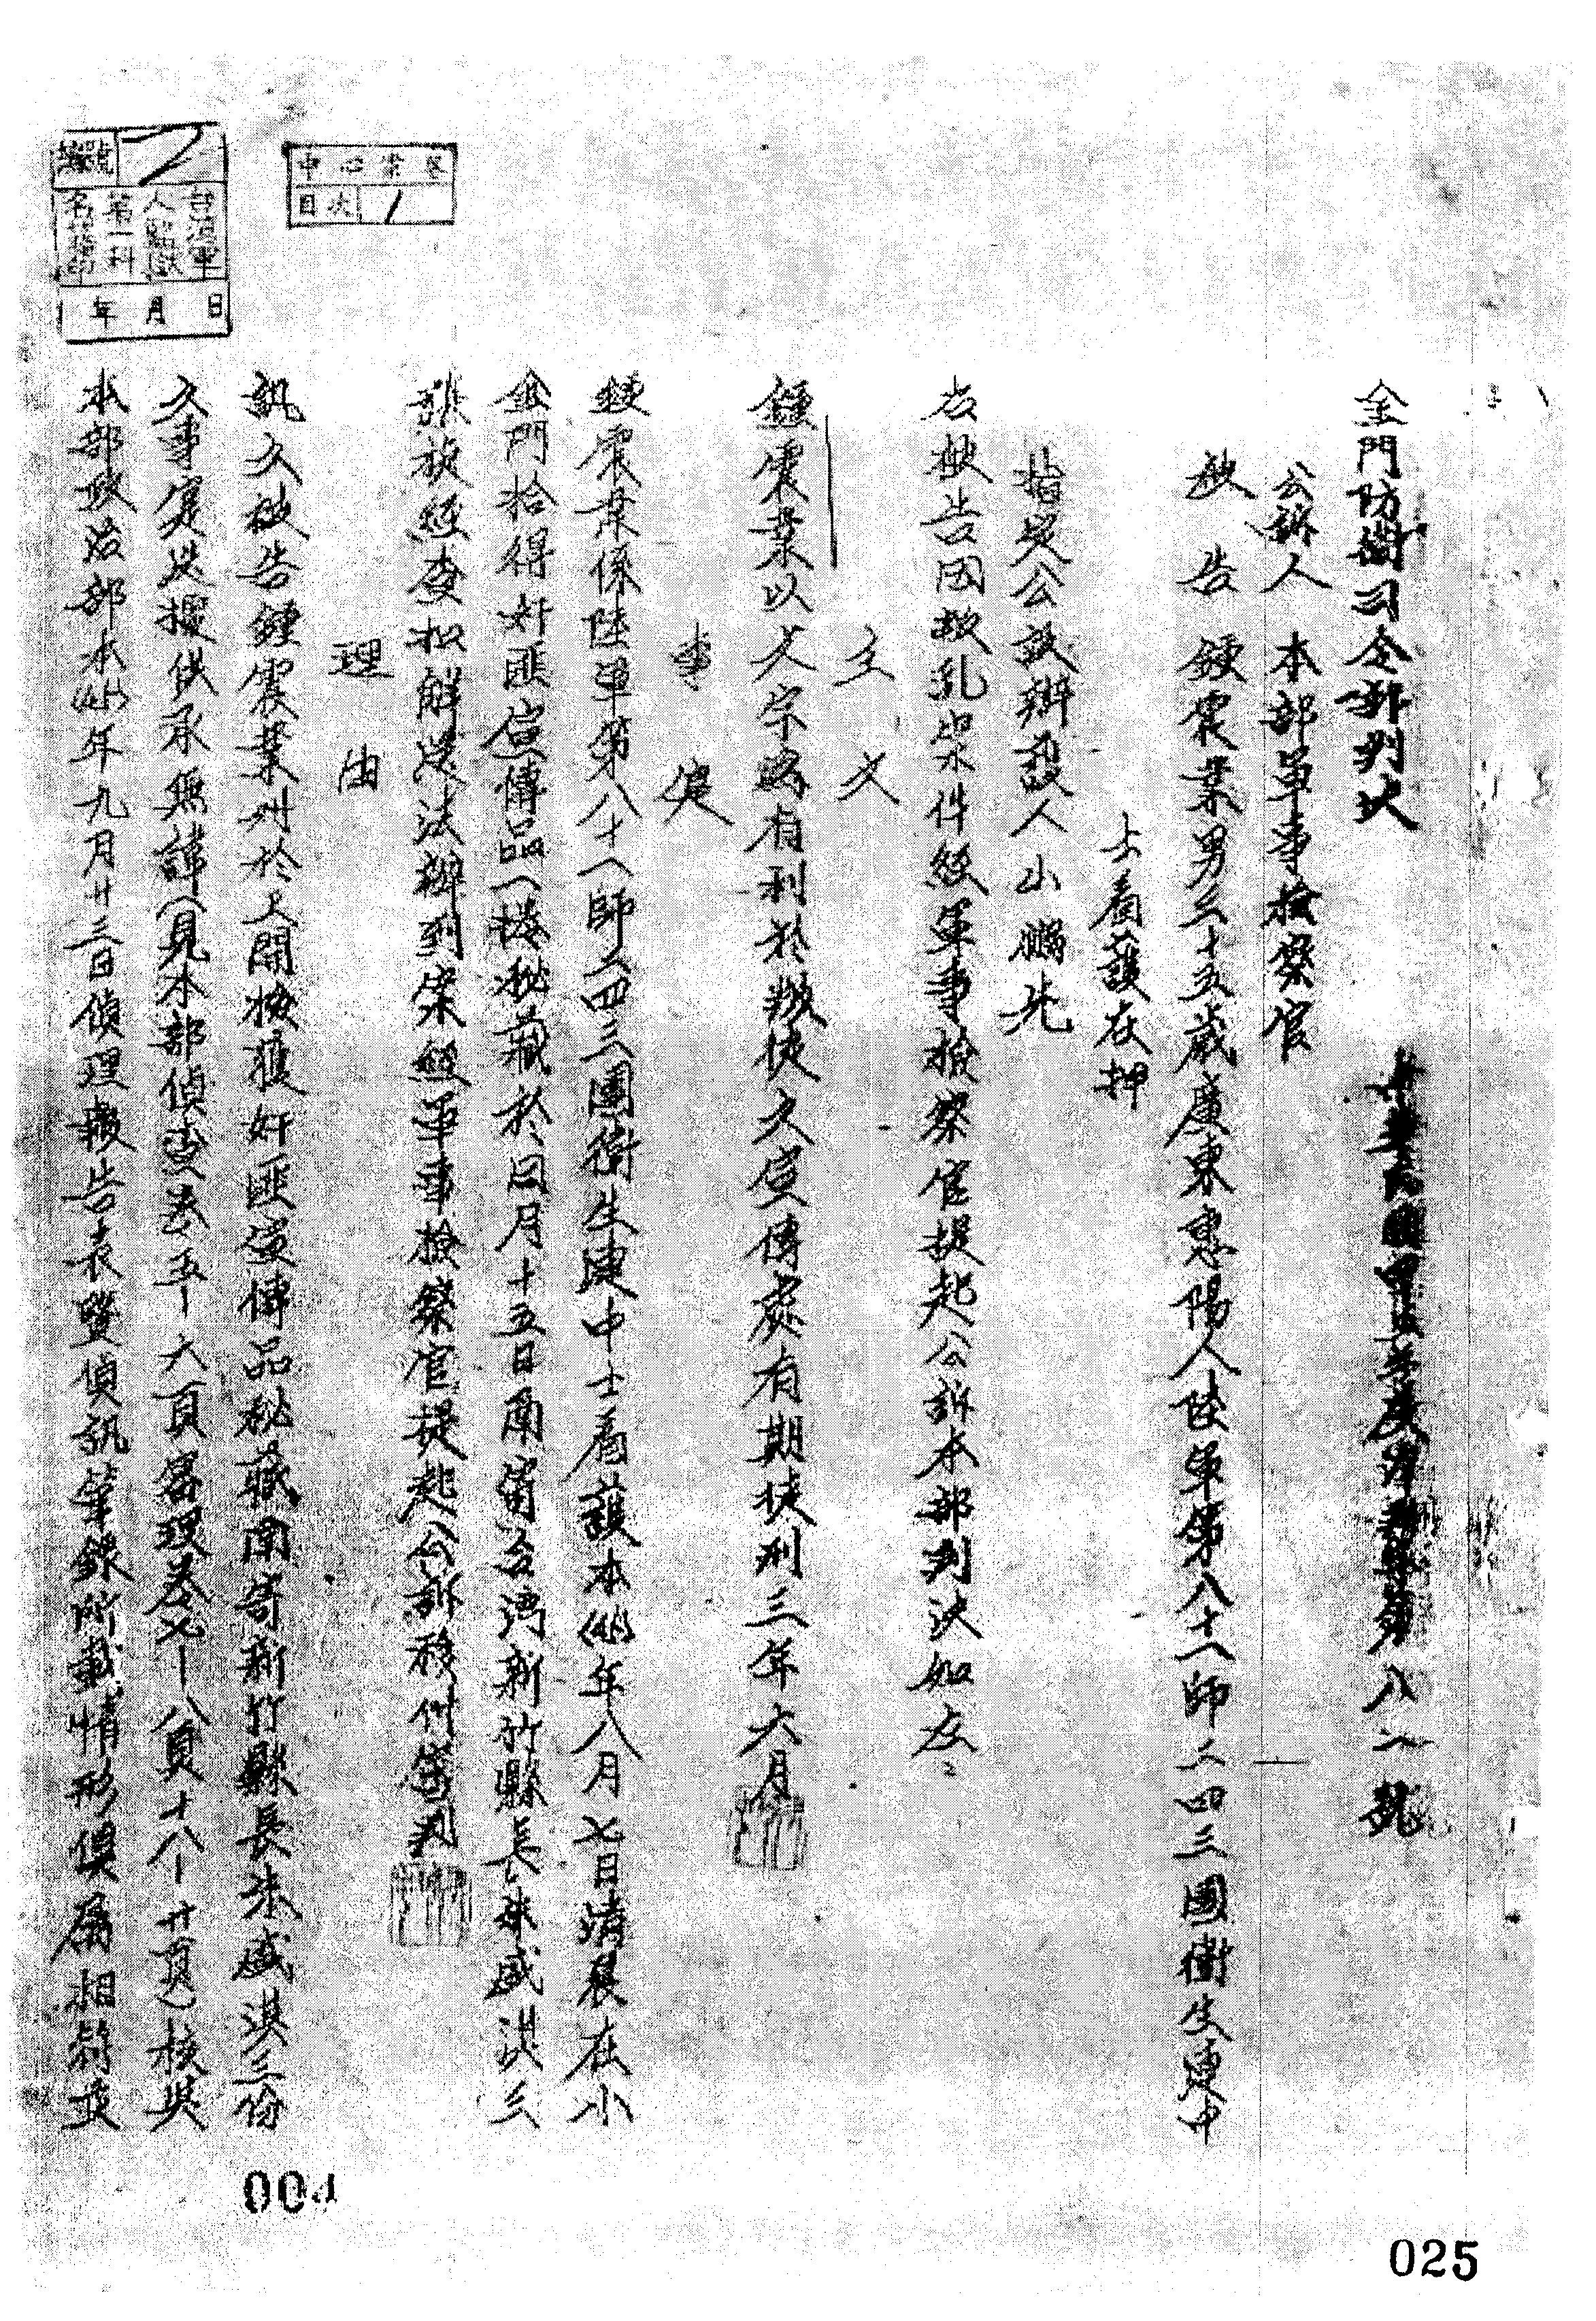 金門防衛司令部判決
八一號
公訴人 本部軍事檢察官
被告 鍾震業男三十五歲廣東惠陽人陸軍第八十一師二四三團衛生連中
士看護在押
指定公設辯護人山鵬先
右被告因叛亂案件經軍事檢察官提起公訴本部判決如左:
主文
鍾震業以文字為有利於叛徒之宣傳處有期徒刑三年六月
事實
鍾震業係陸軍第八十一師二四三團衛生連中士看護本(44)年八月七日清晨在小
金門拾得奸匪宣傳品 秘藏於同月十五日函寄台灣新竹縣長朱盛淇三
張旋經查扣解送法辦到案經軍事檢察官提起公訴移付審判
理由
訊之被告鍾震業對於上開檢獲奸匪宣傳品秘藏函寄新竹縣長朱盛淇三份
之事實迭據供承無諱(見本部偵查卷五—六頁審理卷七—八頁十八—廿頁)核與
本部政治部本(44)年九月廿三日偵理報告表暨偵訊筆錄所載情形俱屬相符
中心案卷
目次 1
編號
年月日
004
025